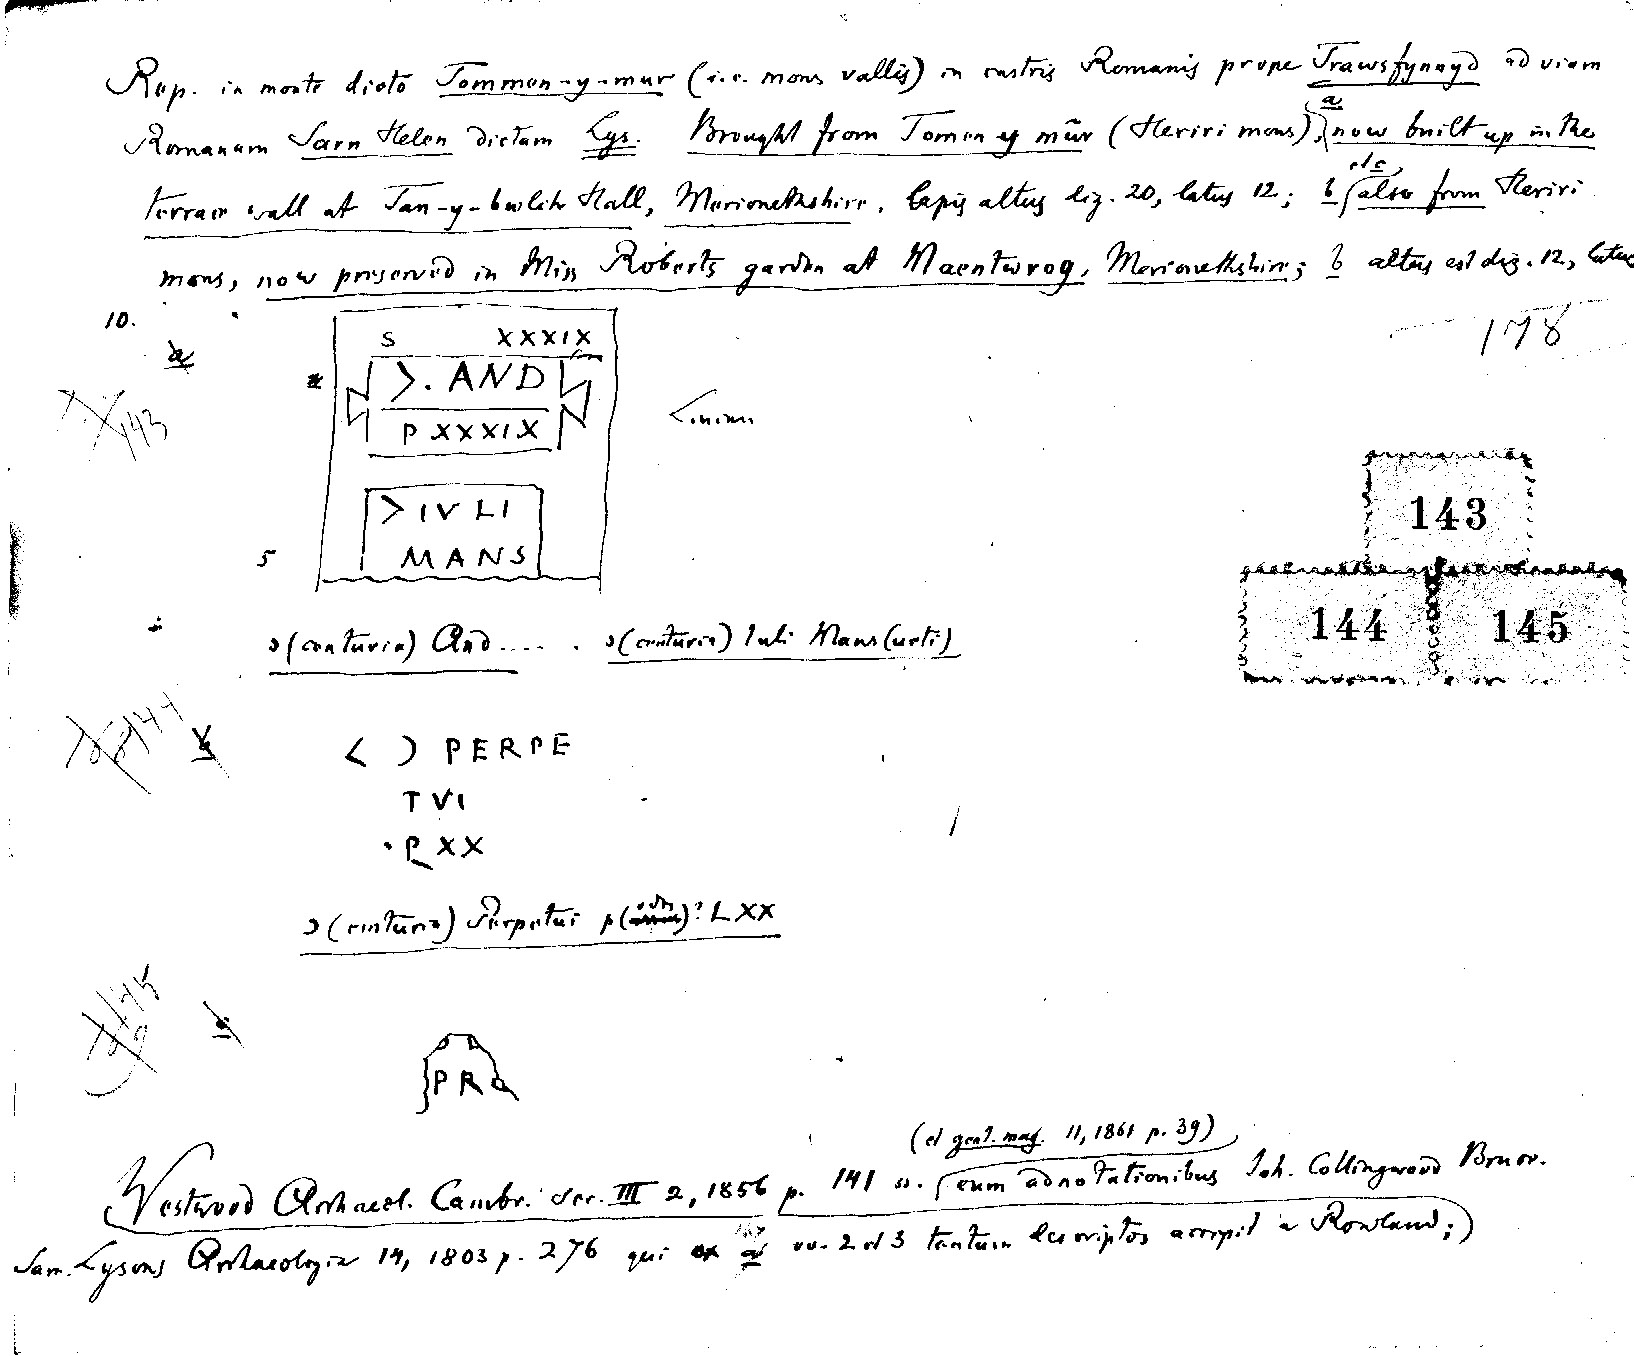 Rep. in monte dicto Tommen-y-mur (i.e. mons vallis) in castris Romanis prope Trawsfynnyd ad viam
a
Romanam Sarn Helen dictam Lys. Brought from Tomen y mūr (Heriri mons), now built up in the
et c
terrace wall at Tan-y-bwlch Hall, Merionethshire. lapis altus dig. 20, latus 12; b also from Heriri
mons, now preserved in Miss Roberts garden at Maentwrog, Merionethshire; b altus est dig. 12, latus
10.
178
a
S XXXIX
>. AND
P XXXIX
143
> IVLI
143
5 MANS
144 145
Ɔ(centuria) And..... Ɔ(centuria) Iuli Mans(ueti)
144
< ) PERPE
TVI
P XX
Ɔ(centuria) Perpetui p(edes)? LXX
145
c
PRO
(et gent. mag. 11, 1861 p. 39)
Westwood Archaeol. Cambr. Ser. III 2, 1856 p. 141 n. (cum adnotationibus Joh. Collingwood Bruce.
Sam. Lysons Archaeologia 14, 1803 p. 276 qui ex a vv. 2 et 3 tantum descriptos accepit a Rowland;)